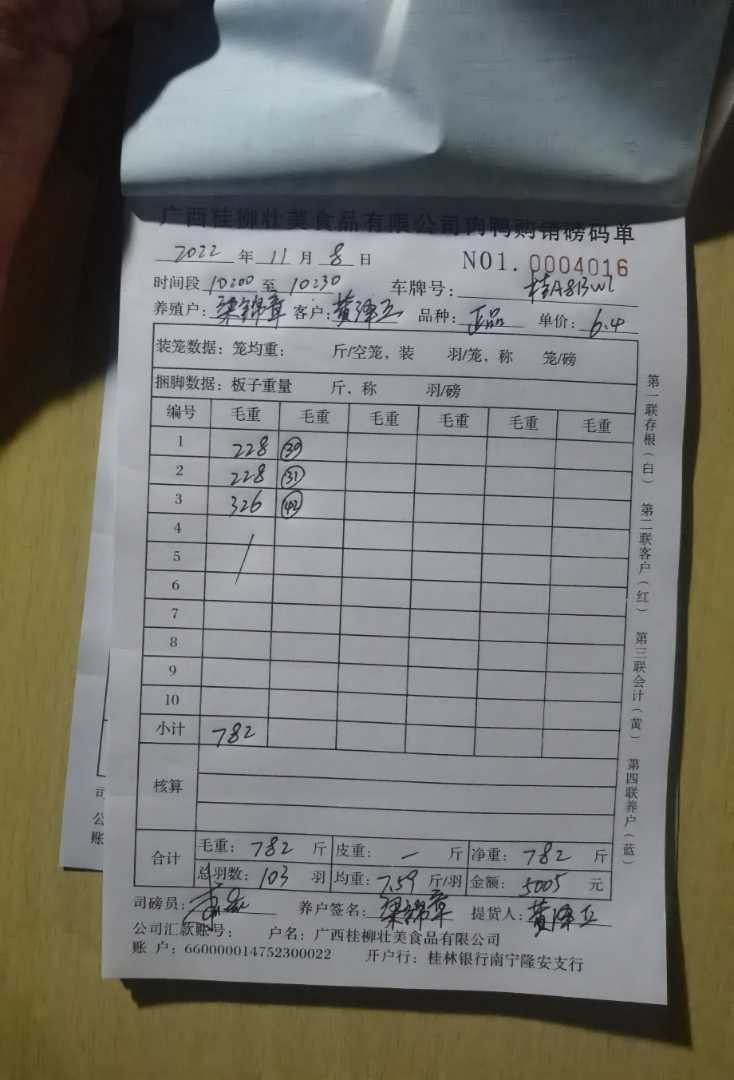 广西桂柳壮美食品有限公司肉鸭购销磅码单
2022 年 11 月 8 日 NO1. 0004016
时间段 10:00 至 10:30 车牌号: 桂A813WL
养殖户: 梁锦章 客户: 黄泽立 品种: 正品 单价: 6.4
装笼数据: 笼均重: 斤/空笼, 装 羽/笼, 称 笼/磅
捆脚数据: 板子重量 斤、称 羽/磅
编号 毛重 毛重 毛重 毛重 毛重 毛重
1 228 30
2 228 31
3 326 42
4
5
6
7
8
9
10
小计 782
核算
合计 毛重: 782 斤 皮重: — 斤 净重: 782 斤
总羽数: 103 羽 均重: 7.59 斤/羽 金额: 5005 元
司磅员: 养户签名: 梁锦章 提货人: 黄泽立
公司汇款账号: 户名: 广西桂柳壮美食品有限公司
账 户: 660000014752300022 开户行: 桂林银行南宁隆安支行
第一联存根(白) 第二联客户(红) 第三联会计(黄) 第四联养户(蓝)
司
公
账